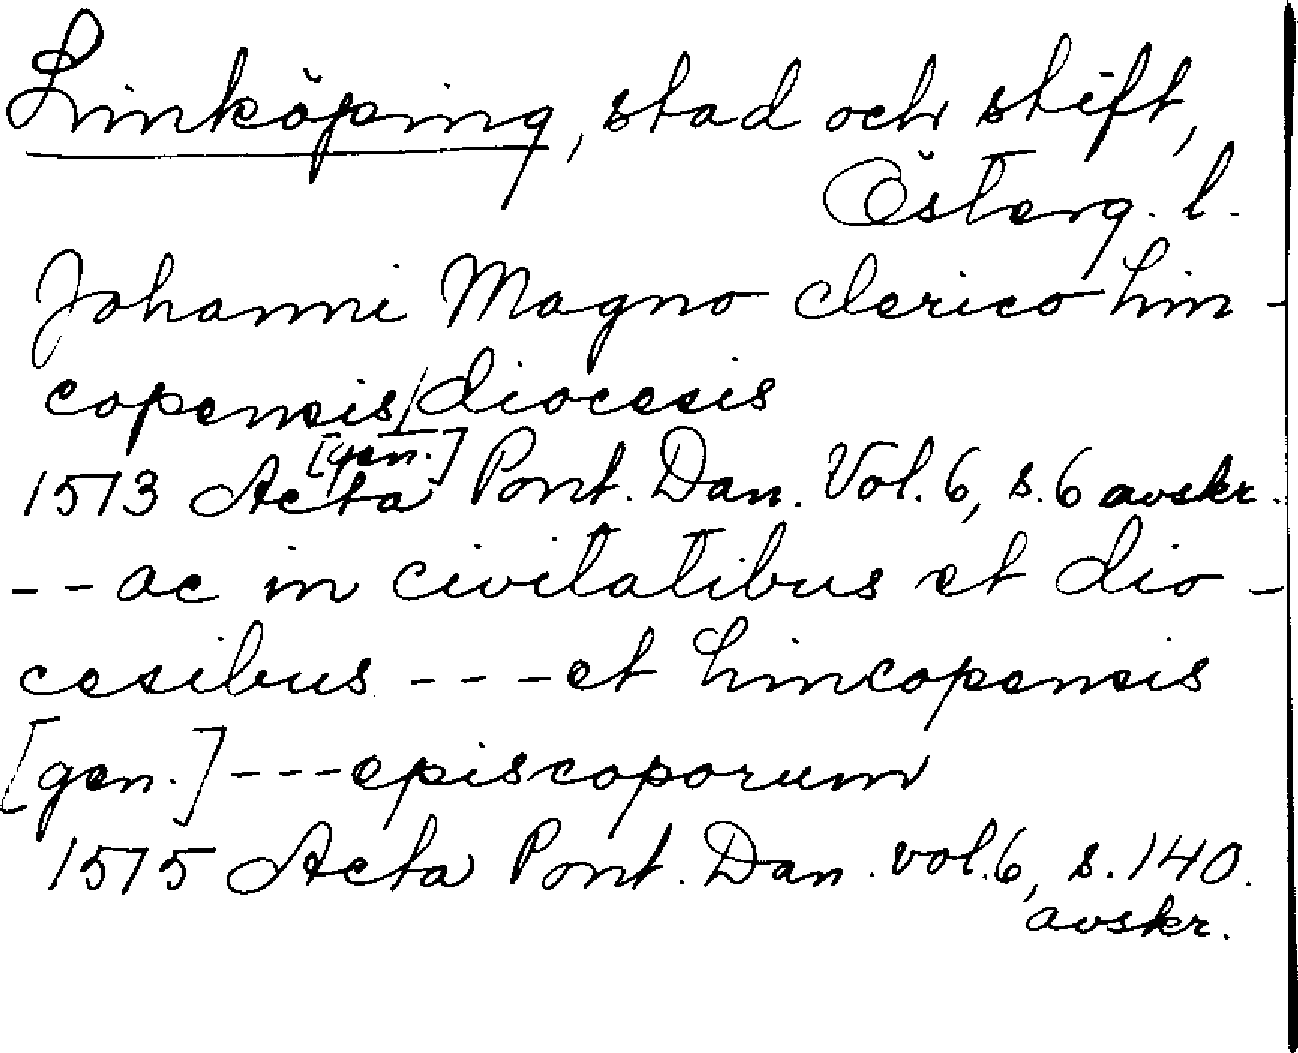 Linköping, stad och stift,
Österg. l.
Johanni Magno clerico Lin-
copensis/diocesis
[gen.]
1513 Acta Pont. Dan. Vol. 6, s. 6 avskr.
-- ac in civitatibus et dio-
cesibus --- et Lincopensis
[gen.] --- episcoporum
1515 Acta Pont. Dan. vol. 6, s. 140.
avskr.